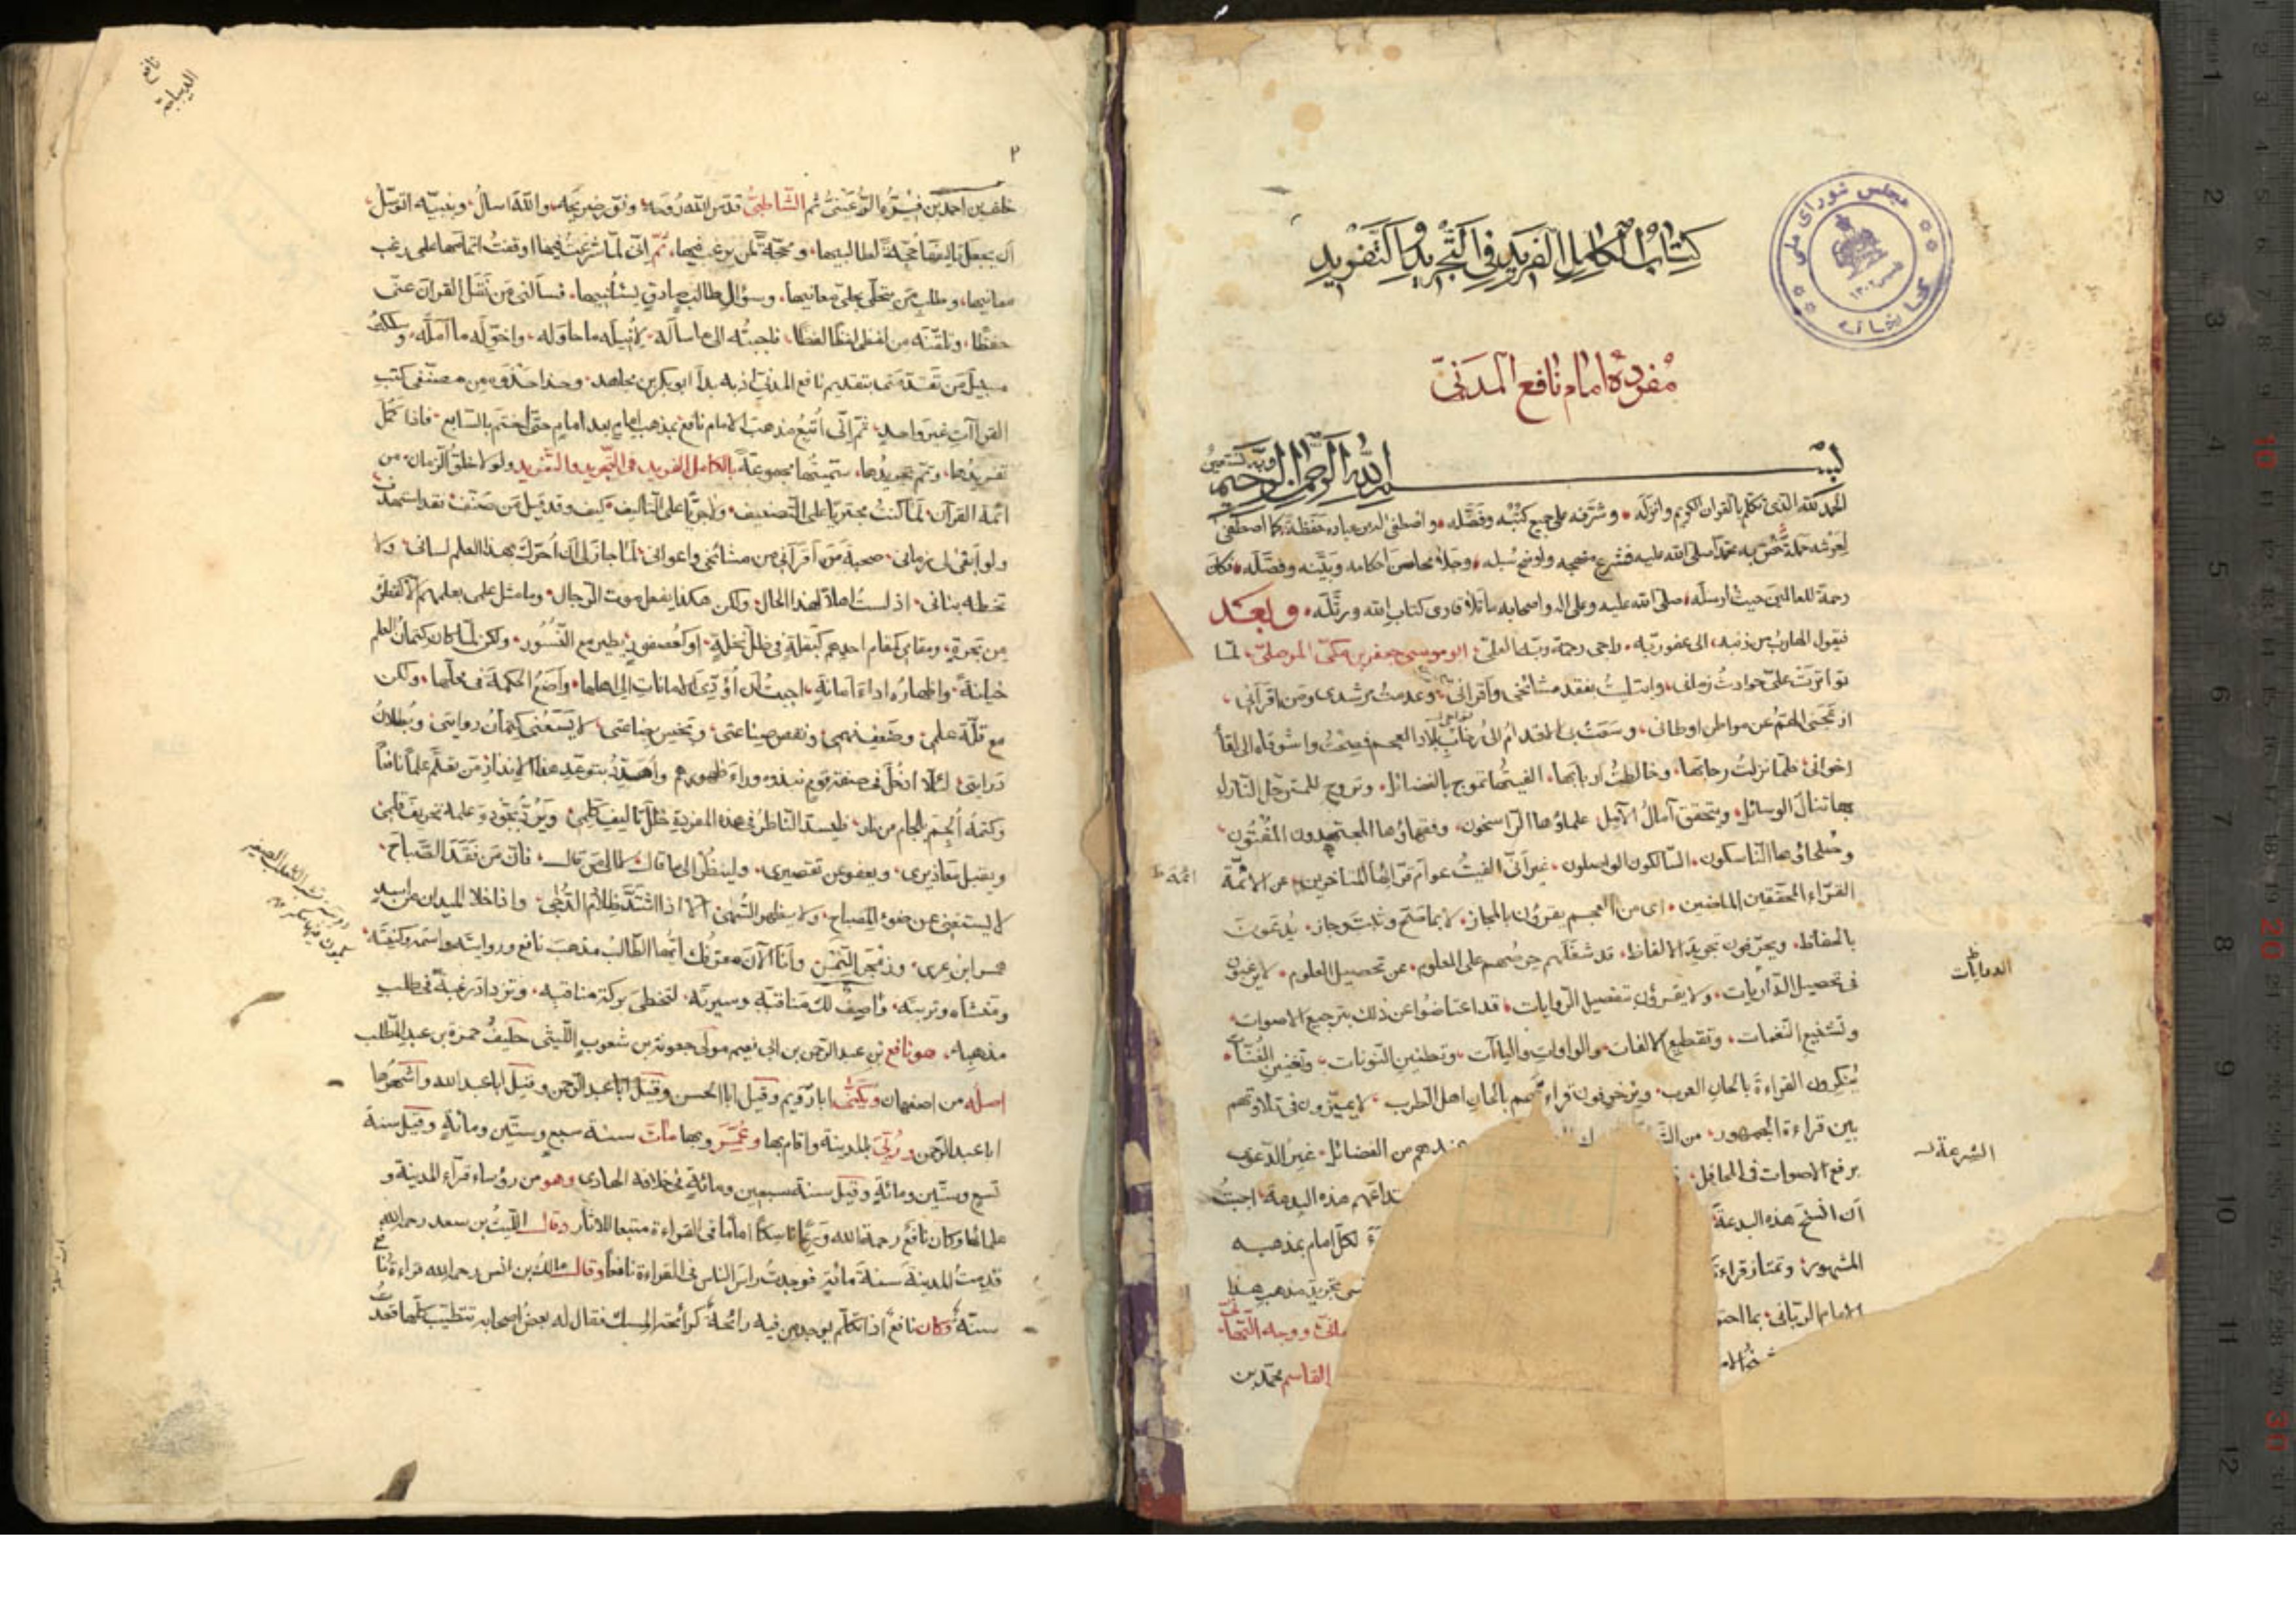 كتاب الكامل الفريد في التجريد والتفريد
مجلس شورای ملی
کتابخانه
١٣٠٢
مفردة امام نافع المدني
بسم الله الرحمن الرحيم
الحمد لله الذي تكلم بالقران الكريم وانزله وشرفه على جميع كتبه وفضله واصطفى لدين عباده حفظة كما اصطفى
لعرشه حملة خص به محمدا صلى الله عليه فشرع منهجه واوضح سبله وجلاه محاسن احكامه وبينه وفصله فكان
رحمة للعالمين حيث ارسله صلى الله عليه وعلى اله واصحابه ما تلا قارى كتاب الله ورتله وبعد
فيقول الهارب من ذنبه الى عفو ربه راجى رحمة ربه العلى ابو موسى جعفر بن مكى الموصلى لما
تواترت على حوادث زمانى وابتليت بفقد مشائخى واقرانى وعدمت مرشدى ومن اقرانى
از عجنى الهم عن مواطن اوطانى وسعت بى الاقدام الى رحاب بلاد العجم فصحت واشوقاه الى لقا
اخوانى فلما نزلت رحابها وخالطت اربابها الفيتها تموج بالفضائل وتروج للمترجل النازل
بها تنال الوسائل ويتحقق آمال الآمل علماؤها الراسخون وفقهاؤها المجتهدون المفتون
وصلحاؤها الناسكون السالكون الواصلون غير انى الفيت عوام قرائها المتاخرين عن الائمة
ائمة ط
القراء المحققين الماضين اى من العجم يقرؤن بالمجاز لا بما صح وثبت وجاز يدعون
بالحفاظ ويحرفون تجويد الالفاظ قد شغلهم حرصهم على المعلوم عن تحصيل العلوم لا يرغبون
فى تحصيل الدرايات ولا يقرؤن بتفصيل الروايات قد اعتاضوا عن ذلك بترجيع الاصوات
وتشنيع النغمات وتقطيع الالفات والواوات والياآت وتطنين النونات وتغنين الغنات
ينكرون القراءة بالحان العرب ويزخرفون قراءتهم بالحان اهل الطرب لا يميزون فى تلاوتهم
بين قراءة الجمهور من عندهم من الفضائل غير الدعوى
برفع الاصوات فى المحافل هذه البدعة اجبت
الشرعة
ان انسخ هذه البدعة لكل امام بمذهبه
المشهور وتمتاز قراءة تجريد مذهب هذا
الامام الربانى بما ووجه التهانى
القاسم محمد بن
نافع
الديباجة
٢
خلف بن احمد بن فيره الرعينى ثم الشاطبى قدس الله روحه ونور ضريحه والله اسال وبنبيه اتوسل
ان يجعل تاليفها حجة لطالبيها ومحجة لمن يرغب فيها ثم انى لما شرعت فيها اوقفت اتمامها على رغب
معانيها وطلب من يتحلى بحلى معانيها وسؤال طالب صادق يستأنيها فسألنى من نقل القران عنى
حفظا وتلقنه من لفظى لفظا لفظا فاجبته الى ما ساله لانيله ما حاوله واخوله ما امله وسلكت
سبيل من تقدم بتقديم نافع المدنى اذ به بدأ ابو بكر بن مجاهد وحذا حذوه من مصنفى كتب
القراآت غير واحد ثم انى اتبع مذهب الامام نافع بمذهب امام بعد امام حتى اختم بالسابع فاذا كمل
تفريدها وتم تجريدها سميتها مجموعة بالكامل الفريد فى التجريد والتفريد ولولا خلو الزمان من
ائمة القرآن لما كنت مجتريا على التصنيف ولا جريا على التاليف كيف وقد قيل من صنف فقد استهدف
ولو ابقى لى زمانى صحبة من اقرآنى من مشائخى واعوانى لما جاز لى ان احرك بهذا العلم لسانى ولا
تخطه بنانى اذ لست اهلا لهذا الحال ولكن هكذا يفعل موت الرجال وما مثل علمى بعلمهم الا كقطرة
من بحرة ومقامى كمقام احدهم كبقلة فى ظل نخلة او كعصفور يطير مع النسور ولكن لما كان كتمان العلم
خيانة واظهاره اداء امانة اجبت ان أؤدى الامانات الى اهلها واضع الحكمة فى محلها ولكن
مع قلة علمى وضعف فهمى ونقص صناعتى وبخس بضاعتى لا يسعنى كتمان روايتى وبطلان
درايتى لئلا ادخل فى صفقة قوم نبذوه وراء ظهورهم واهدد بتوعد هذا الانذار من تعلم علما نافعا
وكتمه ألجم بلجام من نار فليسد الناظر فى هذه المفردة خلل تاليف كلمى ويرد بجوده وعلمه تحريف قلمى
ويقبل معاذيرى ويعفو عن تقصيرى ولينظر الى ما قال لا الى من قال فان من فقد الصباح
لا يستغنى عن ضوء المصباح ولا يظهر السهى الا اذا اشتد ظلام الدجى واذا خلا الميدان من اسد
وانا الآن معرفك ايها الطالب مذهب نافع ورواته واسمه وكنيته
ومنشأه وتربته واصف لك مناقبه وسيرته لتحظى ببركة مناقبه وتزداد رغبة فى طلب
مذهبه هو نافع بن عبد الرحمن بن ابى نعيم مولى جعونة بن شعوب الليثى حليف حمزة بن عبد المطلب
اصله من اصفهان ويكنى ابا رويم وقيل ابا الحسن وقيل ابا عبد الرحمن وقيل ابا عبد الله واشهرها
ابا عبد الرحمن وربى بالمدينة واقام بها وعمر وبها مات سنة سبع وستين ومائة وقيل سنة
تسع وستين ومائة وقيل سنة سبعين ومائة فى خلافة الهادى وهو من رؤساء قرآء المدينة و
علمائها وكان نافع رحمة الله ورعا ناسكا اماما فى القراءة متبعا للاثار وقال الليث بن سعد رحمه الله
قدمت المدينة سنة مائة فوجدت راس الناس فى القراءة نافعا وقال مالك بن انس رحمه الله قراءة نافع
سنة وكان نافع اذا تكلم يوجد من فيه رائحة كرائحة المسك فقال له بعض اصحابه تتطيب كلما قعدت